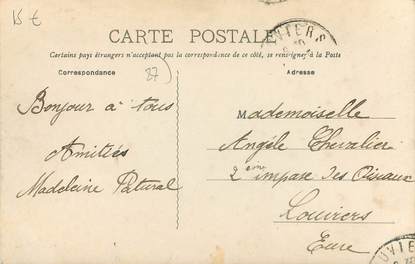 15 €
CARTE POSTALE
Certains pays étrangers n'acceptant pas la correspondance de ce côté, se renseigner à la Poste
Correspondance
27
Adresse
Bonjour à tous
Amitiés
Madeleine Patural
Mademoiselle
Angèle Chevalier
2ème impasse des Oiseaux
Louviers
Eure